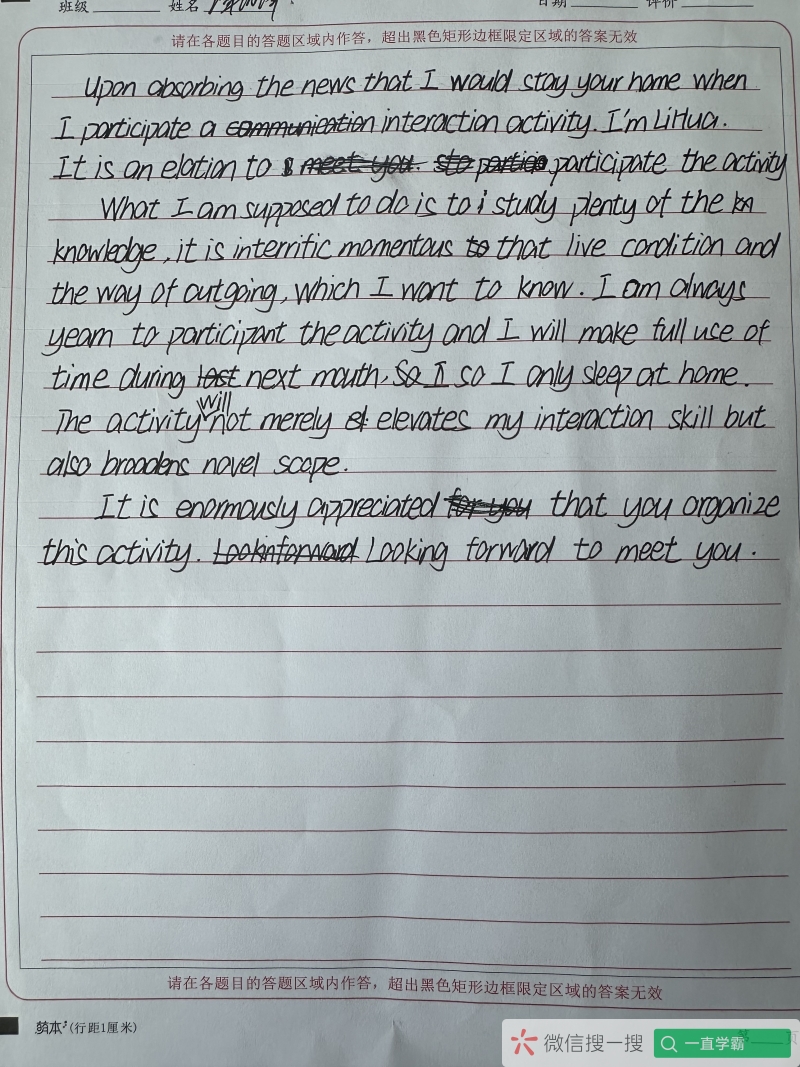 班级 姓名 日期 评价
请在各题目的答题区域内作答，超出黑色矩形边框限定区域的答案无效
Upon absorbing the news that I would stay your home when
I participate a communication interaction activity. I'm LiHua.
It is an elation to meet you. participate the activity
What I am supposed to do is to i study plenty of the kn
knowledge, it is interrific momentous to that live condition and
the way of outgoing, which I want to know. I am always
yearn to participant the activity and I will make full use of
time during last next mouth, So I so I only sleep at home.
will
The activity not merely el elevates my interaction skill but
also broadens novel scope.
It is enormously appreciated for you that you organize
this activity. Lookinforward Looking forward to meet you.
请在各题目的答题区域内作答，超出黑色矩形边框限定区域的答案无效
(行距1厘米)
第 页
微信搜一搜
一直学霸